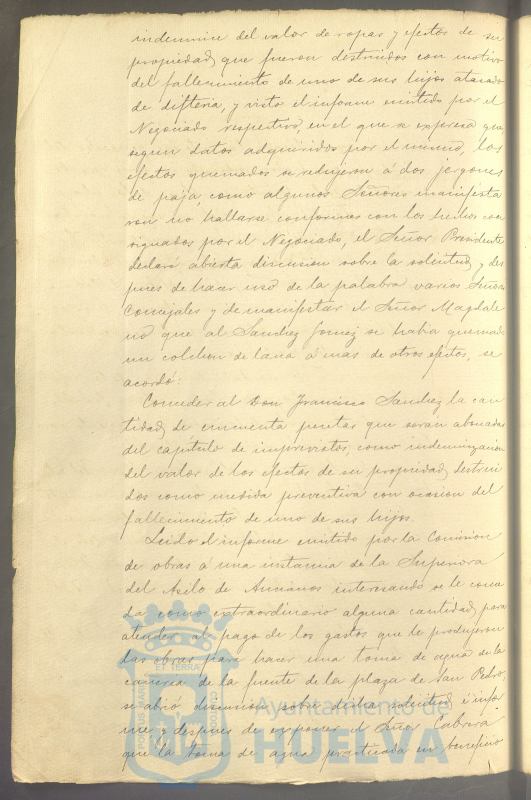 indemnice del valor de ropas y efectos de su
propiedad, que fueron destruidos con motivo
del fallecimiento de uno de sus hijos atacado
de difteria, y visto el informe emitido por el
Negociado respectivo, en el que se expresa que
segun datos adquiridos por el mismo, los
efectos quemados se redujeron á dos jergones
de paja, como algunos Señores manifesta
ron no hallarse conformes con los hechos con
signados por el Negociado, el Señor Presidente
declaró abierta discusion sobre la solicitud, y des
pues de hacer uso de la palabra varios Señores
Concejales y de manifestar el Señor Magdale
no que al Sanchez Gomez se habia quemado
un colchon de lana á mas de otros efectos, se
acordó:
Conceder al Don Francisco Sanchez la can
tidad de cincuenta pesetas que seran abonadas
del capítulo de imprevistos, como indemnizacion
del valor de los efectos de su propiedad, destrui
dos como medida preventiva con ocasion del
fallecimiento de uno de sus hijos.
Leido el informe emitido por la Comision
de obras á una instancia de la Superiora
del Asilo de Ancianos interesando se le conce
da como extraordinario alguna cantidad, para
atender al pago de los gastos que le produjeron
las obras para hacer una toma de agua de la
cañeria de la fuente de la plaza de San Pedro,
se abrió discusion sobre dicha solicitud é infor
me, y despues de exponer el Señor Cabrera
que la toma de agua practicada en beneficio
PORTUS MARIS ET TERRAE CUSTODIA
Ayuntamiento de
HUELVA